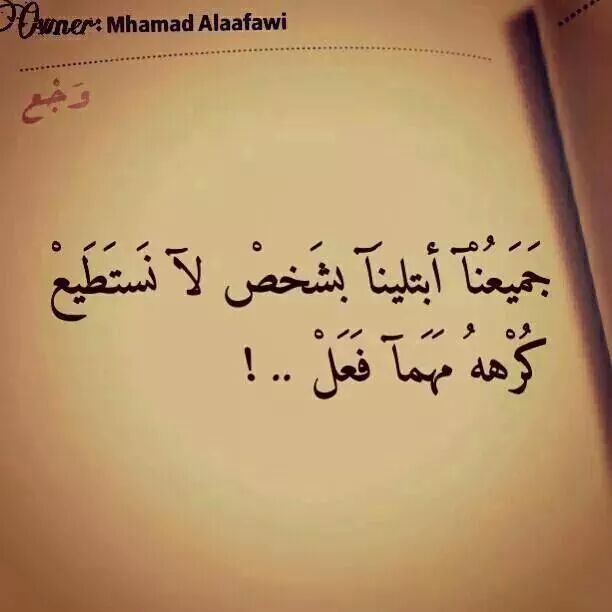 Owner: Mhamad Alaafawi
وَجْع
جَمَيَعُنْآ أبتلينَآ بشَخصْ لآ نَستَطَيعْ
كُرْههُ مهَمَآ فَعَلْ .. !